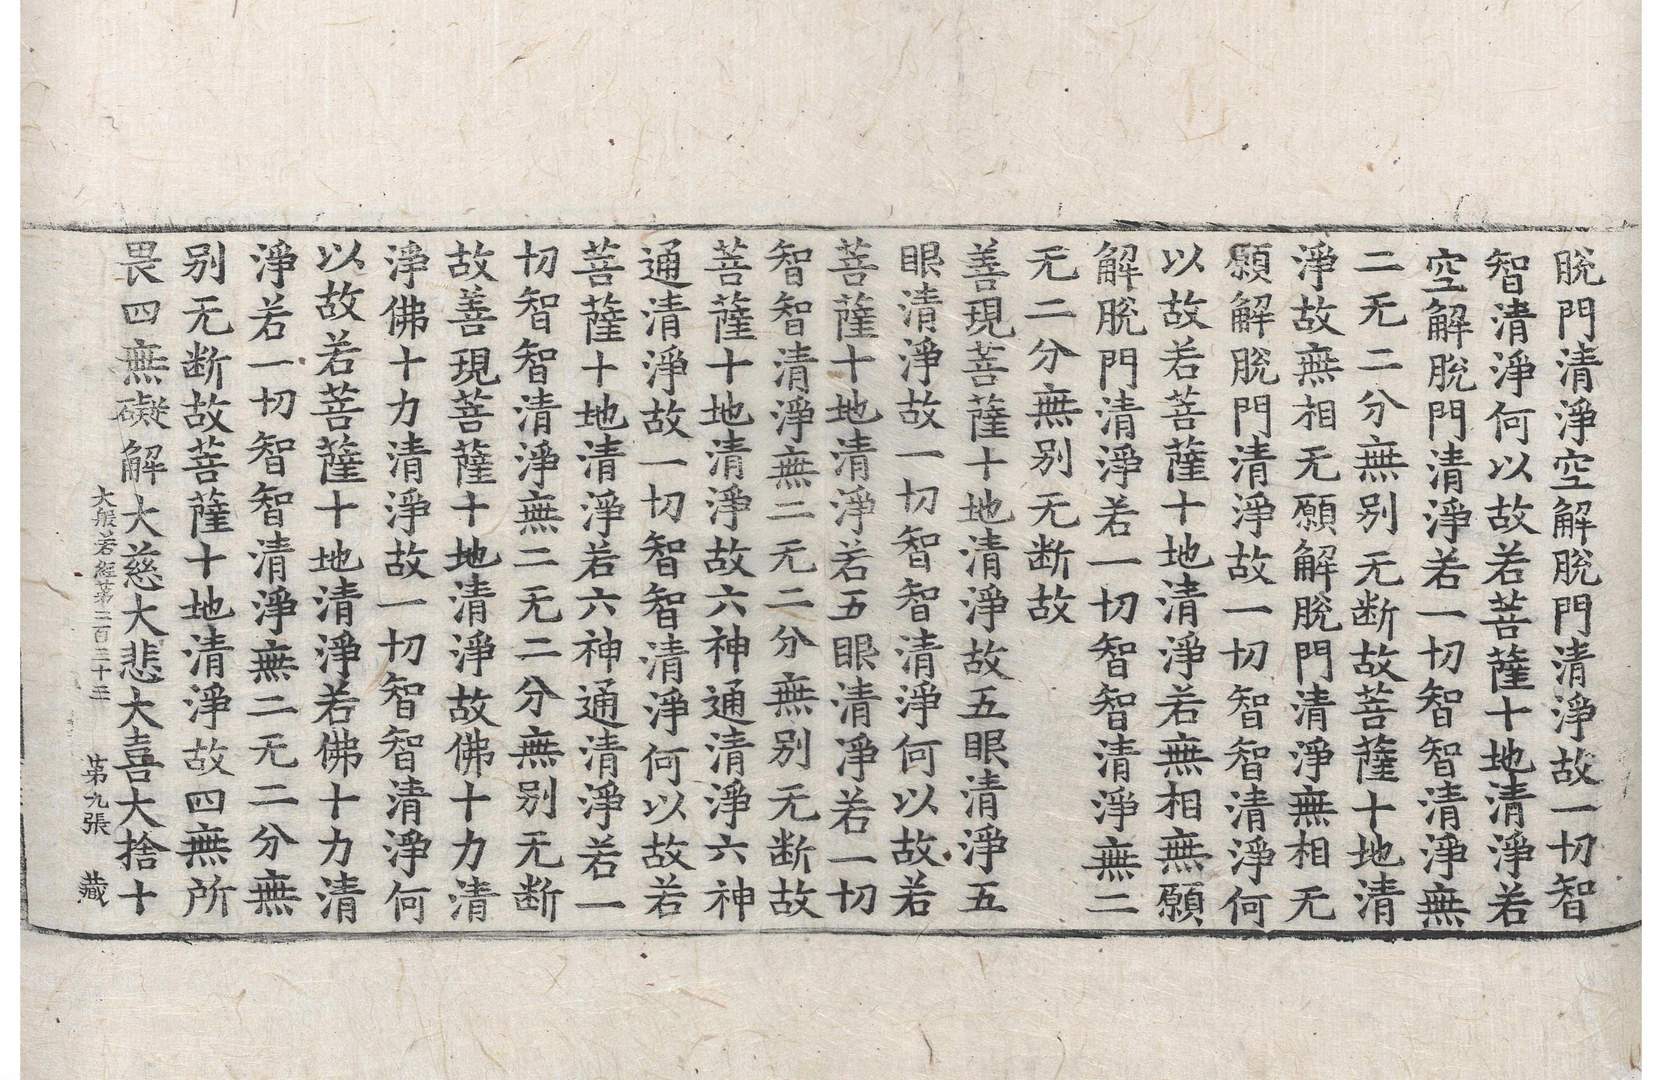 脱門清淨空解脱門清淨故一切智
智清淨何以故若菩薩十地清淨若
空解脱門清淨若一切智智清淨無
二无二分無别无断故菩薩十地清
淨故無相无願解脱門清淨無相无
願解脱門清淨故一切智智清淨何
以故若菩薩十地清淨若無相無願
解脱門清淨若一切智智清淨無二
无二分無别无断故
善現菩薩十地清淨故五眼清淨五
眼清淨故一切智智清淨何以故若
菩薩十地清淨若五眼清淨若一切
智智清淨無二无二分無别无断故
菩薩十地清淨故六神通清淨六神
通清淨故一切智智清淨何以故若
菩薩十地清淨若六神通清淨若一
切智智清淨無二无二分無别无断
故善現菩薩十地清淨故佛十力清
淨佛十力清淨故一切智智清淨何
以故若菩薩十地清淨若佛十力清
淨若一切智智清淨無二无二分無
别无断故菩薩十地清淨故四無所
畏四無礙解大慈大悲大喜大捨十
大般若經第二百三十五 第九張 藏